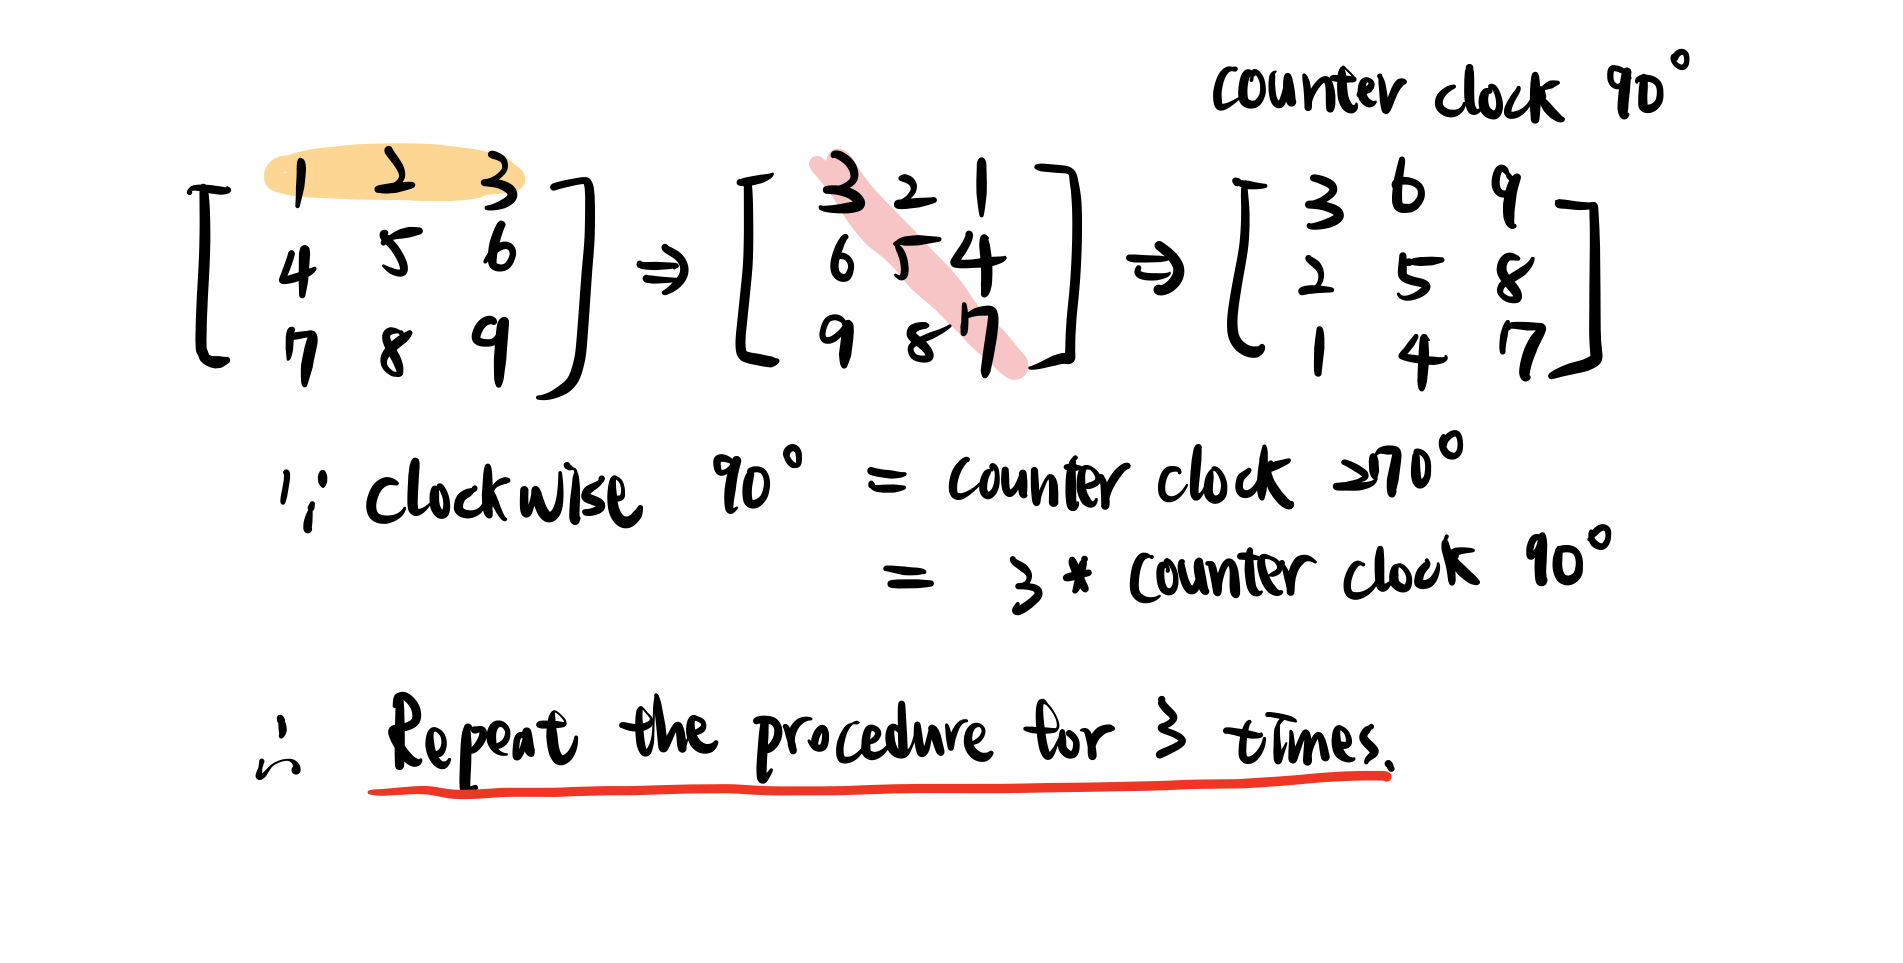 counter clock 90°
[ 1 2 3 ⇒ [ 3 2 1 ] ⇒ [ 3 6 9
4 5 6 6 5 4 2 5 8
7 8 9 ] 9 8 7 1 4 7 ]
∵ clockwise 90° = counter clock 270°
= 3 * counter clock 90°
∴ Repeat the procedure for 3 times.